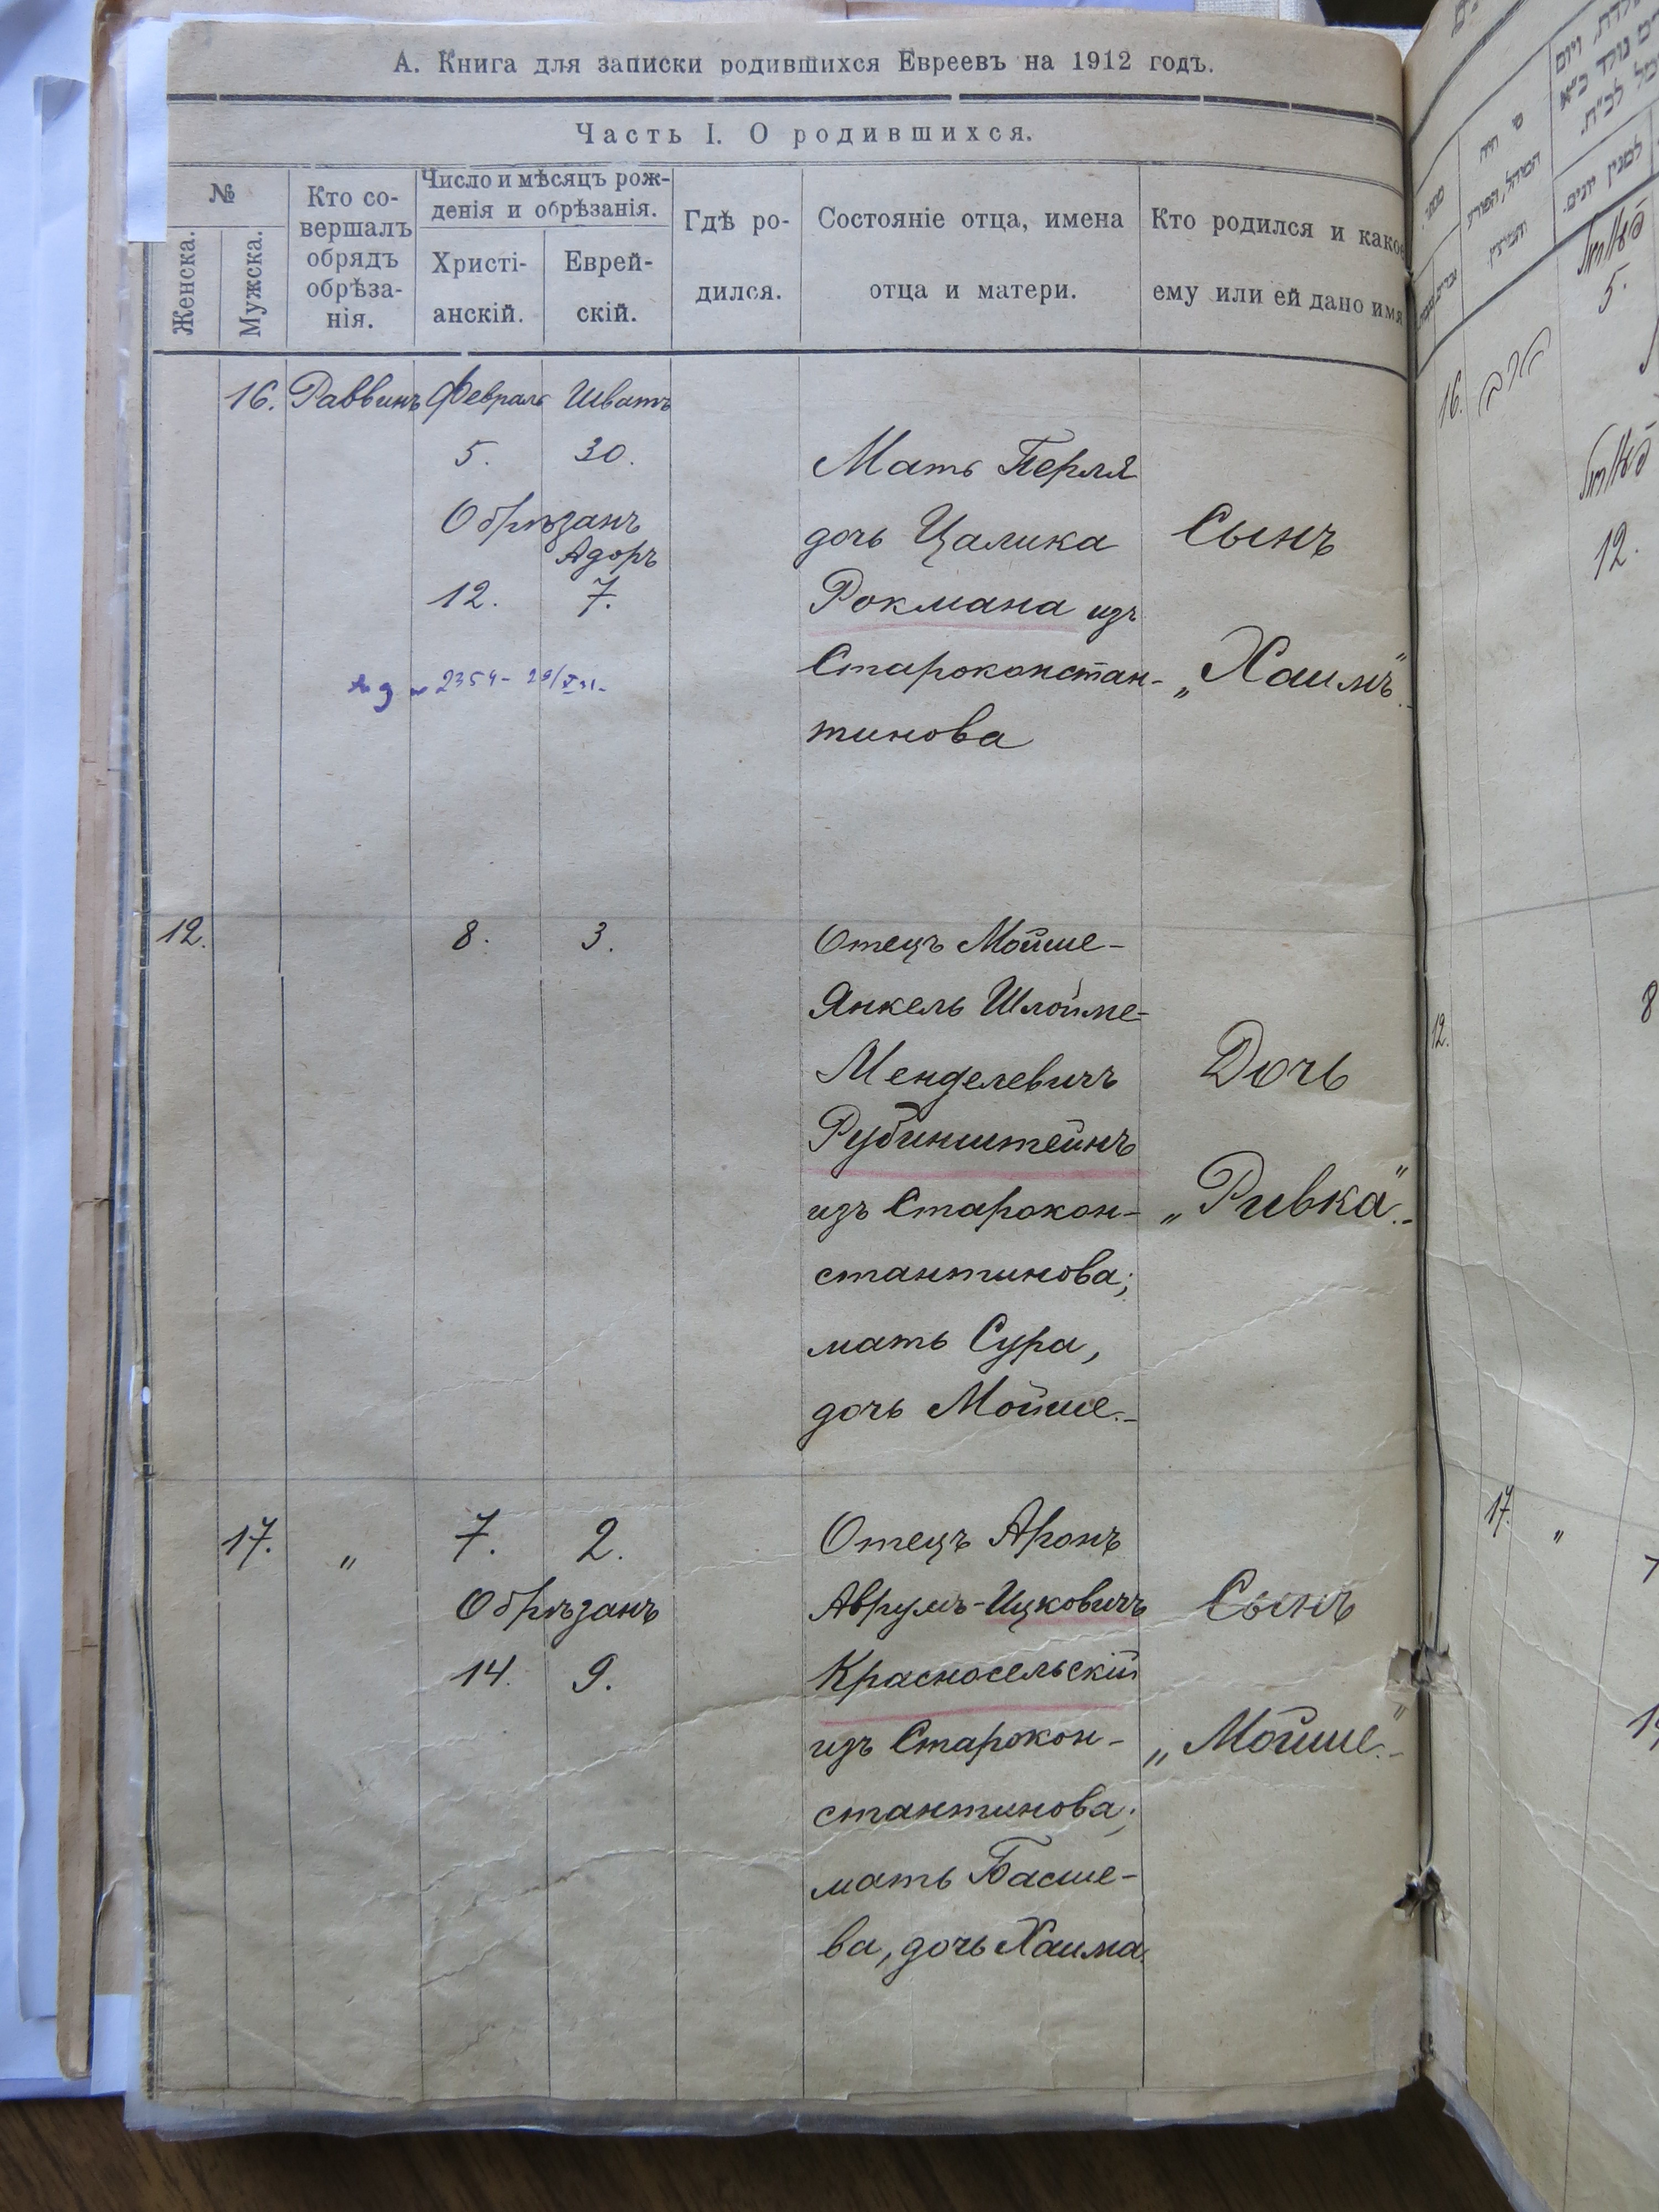 А. Книга для записки родившихся Евреевъ на 1912 годъ.
Часть I. О родившихся.
№
Женска.
Мужска.
Кто со-
вершалъ
обрядъ
обрѣза-
нія.
Число и мѣсяцъ рож-
денія и обрѣзанія.
Христі-
анскій.
Еврей-
скій.
Гдѣ ро-
дился.
Состояніе отца, имена
отца и матери.
Кто родился и какое
ему или ей дано имя
16. Раввинъ Февраль Шватъ
5. 30.
Обрѣзанъ
Адоръ
12. 7.
2354
Мать Перля
дочь Цалика
Рокмана изъ
Староконстан-
тинова
Сынъ
„Хаимъ“.
12. 8. 3.
Отецъ Мойше-
Янкель Шлойме-
Менделевичъ
Рубинштейнъ
изъ Старокон-
стантинова;
мать Сура,
дочь Мойше.
Дочь
„Ривка“.
17. „ 7. 2.
Обрѣзанъ
14. 9.
Отецъ Аронъ
Аврумъ-Ицковичъ
Красносельскій
изъ Старокон-
стантинова;
мать Басше-
ва, дочь Хаима.
Сынъ
„Мойше“.
16.
5.
12.
12.
8
17. „
7